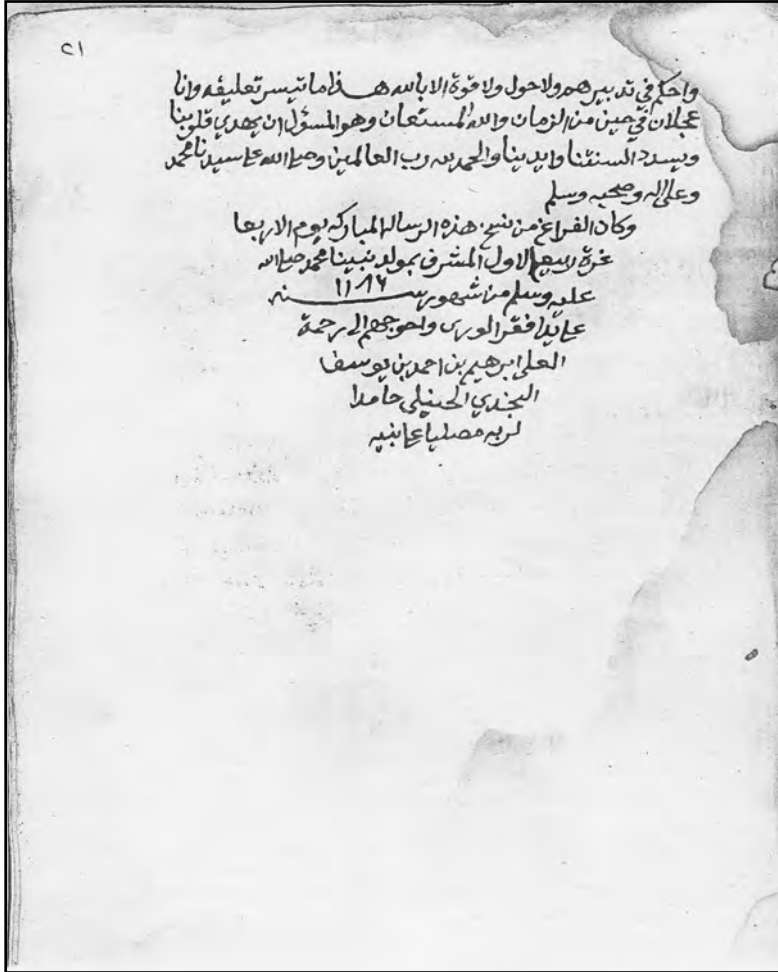 ٢١
واحكم في تدبيرهم ولا حول ولا قوة الا بالله هــذا ما تيسر تعليقه وانا
عجلان في حين من الزمان والله المستعان وهو المسؤل ان يهدي قلوبنا
ويسدد السنتنا وايدينا والحمد لله رب العالمين وصلى الله على سيدنا محمد
وعلى اله وصحبه وسلم
وكان الفراغ من نسخ هذه الرسالة المباركه يوم الاربعا
غرة ربيع الاول المشرف بمولد نبينا محمد صلى الله
عليه وسلم من شهور ســنه ١١٨٦
على يد افقر الورى واحوجهم الى رحمة
العلي ابرهيم بن احمد بن يوسف
النجدي الحنبلي حامدا
لربه مصليا على نبيه